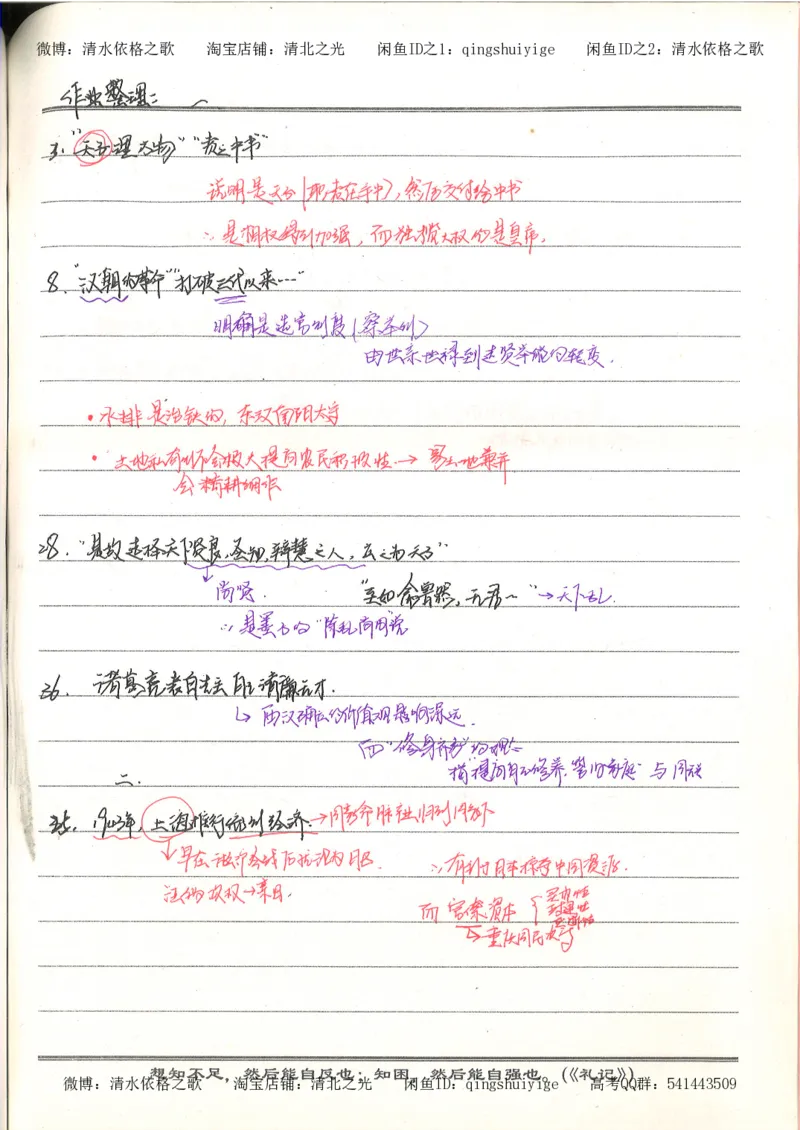 微博：清水依格之歌 淘宝店铺：清北之光 闲鱼ID之1：qingshuiyige 闲鱼ID之2：清水依格之歌
作业整理：
3. "天子理万物" "责之中书"
说明是天子(职责在手中)，然后交付给中书
∴是相权得到加强，而独揽大权的是皇帝.
8. "汉朝的革命" "打破三代以来……"
明确是选官制度(察举制)
由世亲世禄到选贤举能的转变.
·水排是冶铁的，东汉南阳太守
·土地私有制不会极大提高农民积极性→易土地兼并
会精耕细作
28. "是故选择天下贤良，圣知，辩慧之人，立之为天子"
尚贤.
"至如禽兽然，无君~"→天下乱.
∴是墨子的"除乱尚同"说
36. 诸葛亮表自
↳两汉确立的价值观影响深远.
而"修身齐家"的观念
指提高自己修养，管好家庭与国
二.
35. 1943年，上海推行统制经济.→国家命脉
早在
∴有利于日本掠夺中国资源.
法的政权→亲日.
而官僚资本
买办性
封建性
垄断性
→重庆国民政府
想知不足，然后能自反也；知困，然后能自强也。(《礼记》)
微博：清水依格之歌 淘宝店铺：清北之光 闲鱼ID：qingshuiyige 高考QQ群：541443509